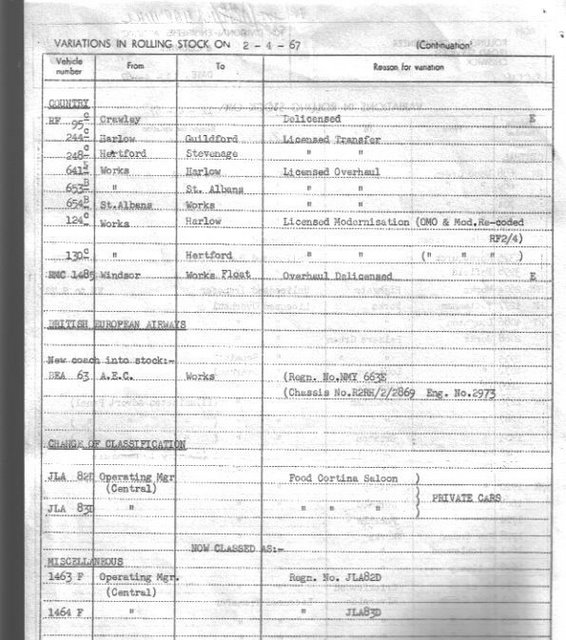 VARIATIONS IN ROLLING STOCK ON 2 - 4 - 67 (Continuation)
Vehicle number From To Reason for variation
COUNTRY
RF 95C Crawley Delicensed E
244C Harlow Guildford Licensed Transfer
248C Hertford Stevenage " "
641 Works Harlow Licensed Overhaul
653B " St. Albans " "
654B St.Albans Works " "
124C Works Harlow Licensed Modernisation (OMO & Mod.Re-coded
RF2/4)
130C " Hertford " " (" " " )
RMC 1485 Windsor Works Float Overhaul Delicensed E
BRITISH EUROPEAN AIRWAYS
New coach into stock:-
BEA 63 A.E.C. Works (Regn. No.NMY 663E
(Chassis No.R2RH/2/2869 Eng. No.2973
CHANGE OF CLASSIFICATION
JLA 82D Operating Mgr Food Cortina Saloon )
(Central) ) PRIVATE CARS
JLA 83D " " " " )
NOW CLASSED AS:-
MISCELLANEOUS
1463 F Operating Mgr. Regn. No. JLA82D
(Central)
1464 F " " JLA83D